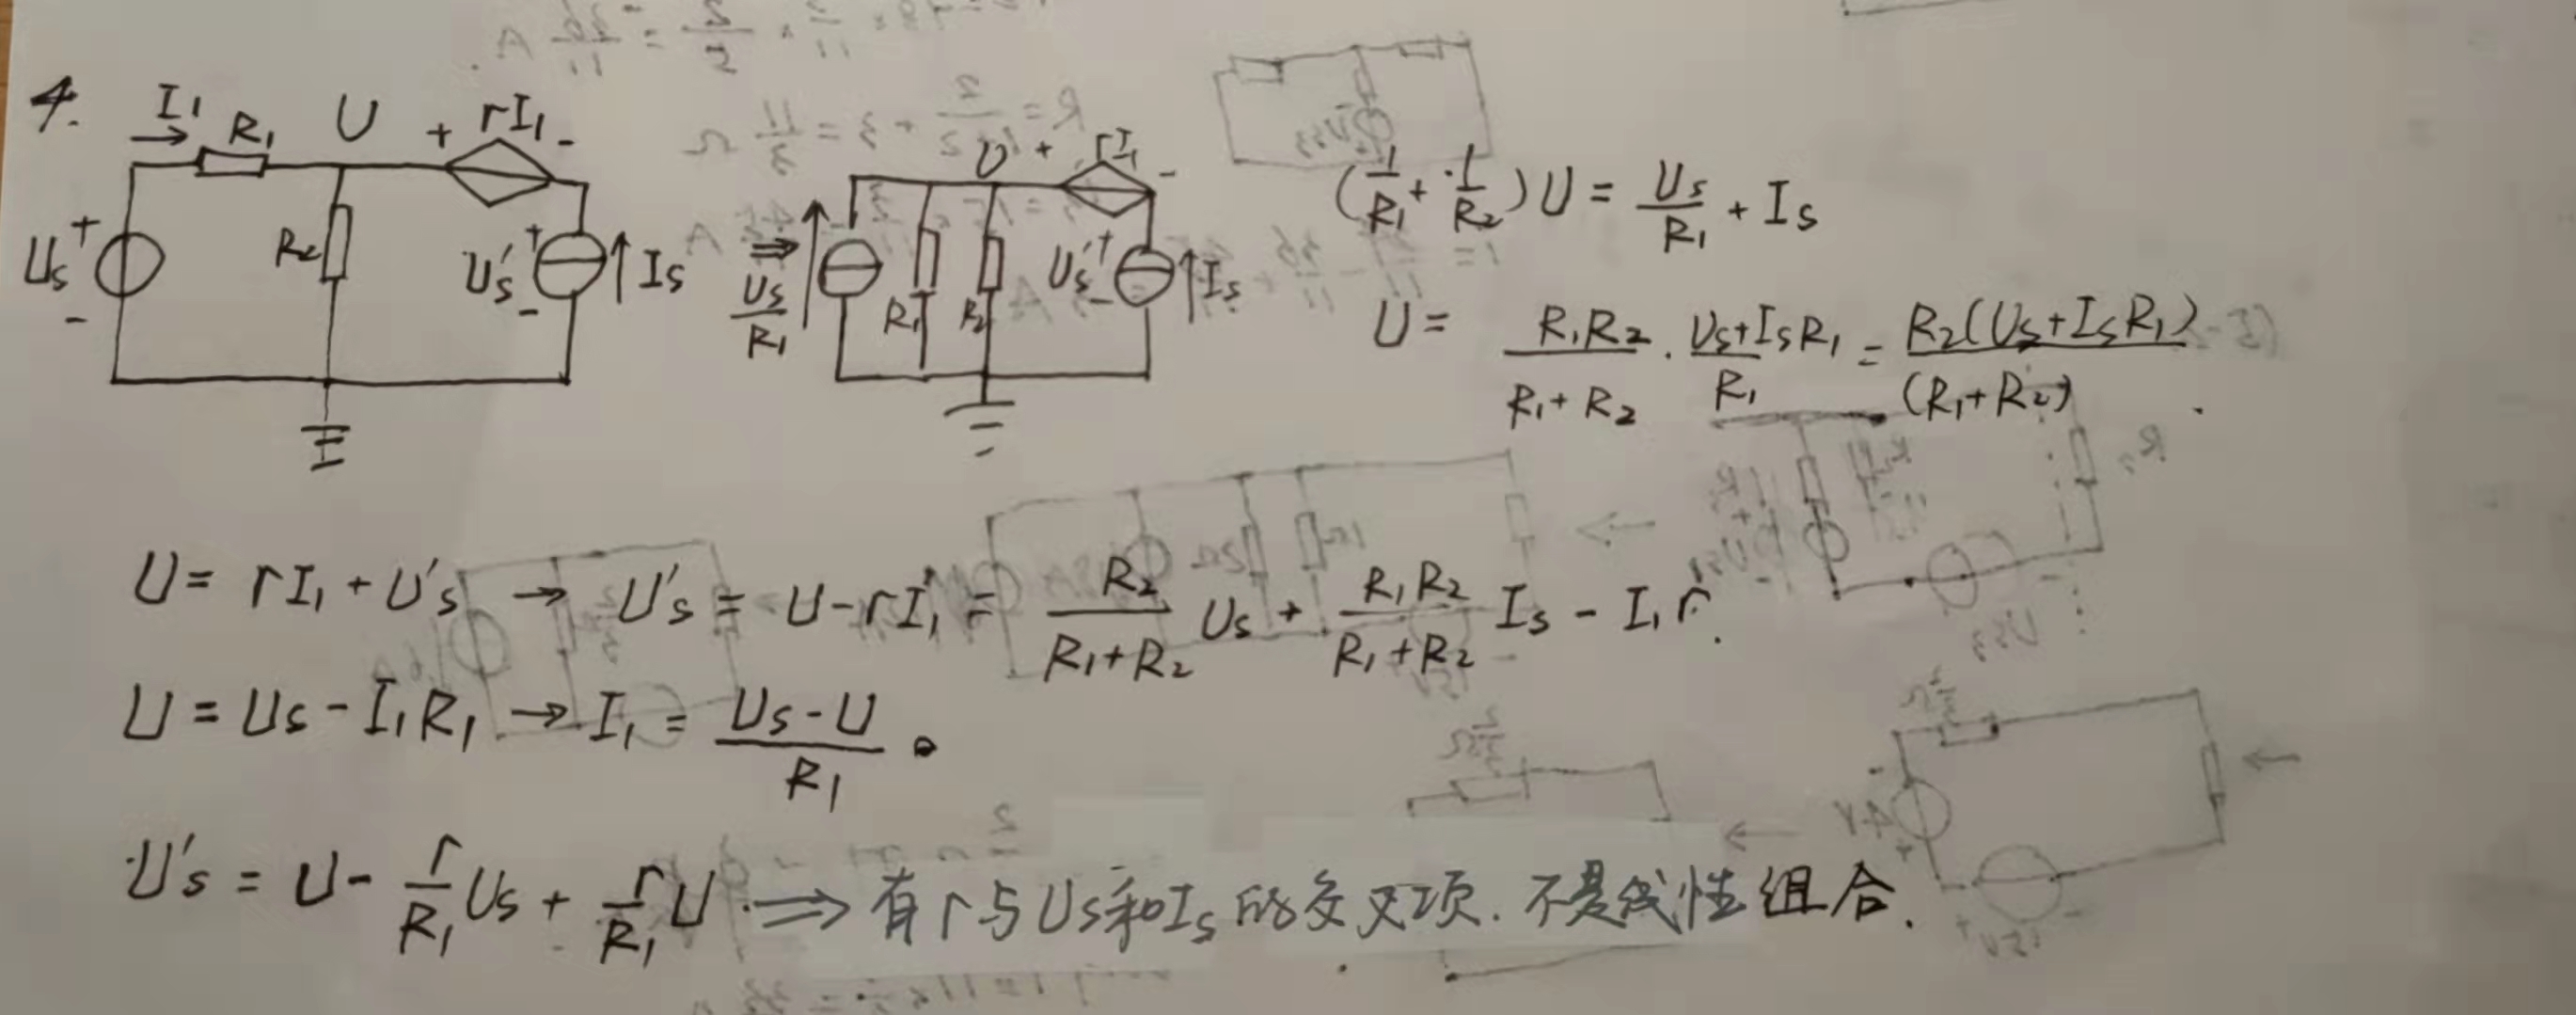 4.
I₁ R₁ U + rI₁ -
Us + - R₂ Us' + - Is
⇒
Us/R₁ R₁ R₂ U + rI₁ - Us' + - Is
(1/R₁ + 1/R₂)U = Us/R₁ + Is
U = R₁R₂/(R₁+R₂) · (Us+IsR₁)/R₁ = R₂(Us+IsR₁)/(R₁+R₂)
U = rI₁ + U's → U's = U - rI₁ = R₂/(R₁+R₂) Us + R₁R₂/(R₁+R₂) Is - I₁r.
U = Us - I₁R₁ → I₁ = (Us-U)/R₁.
U's = U - r/R₁ Us + r/R₁ U. ⇒ 有r与Us和Is的交叉项. 不是线性组合.